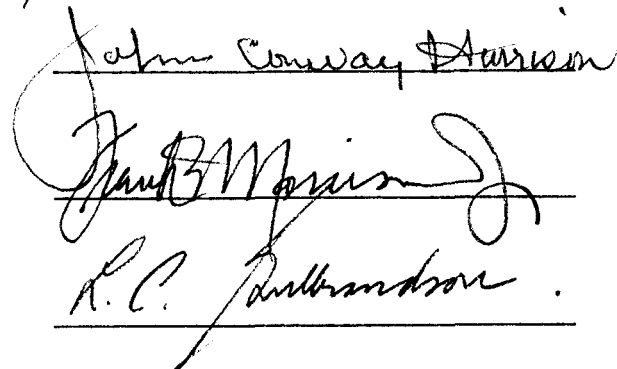 John Conway Harrison
Frank B Morrison Jr
L. C. Gulbrandson.